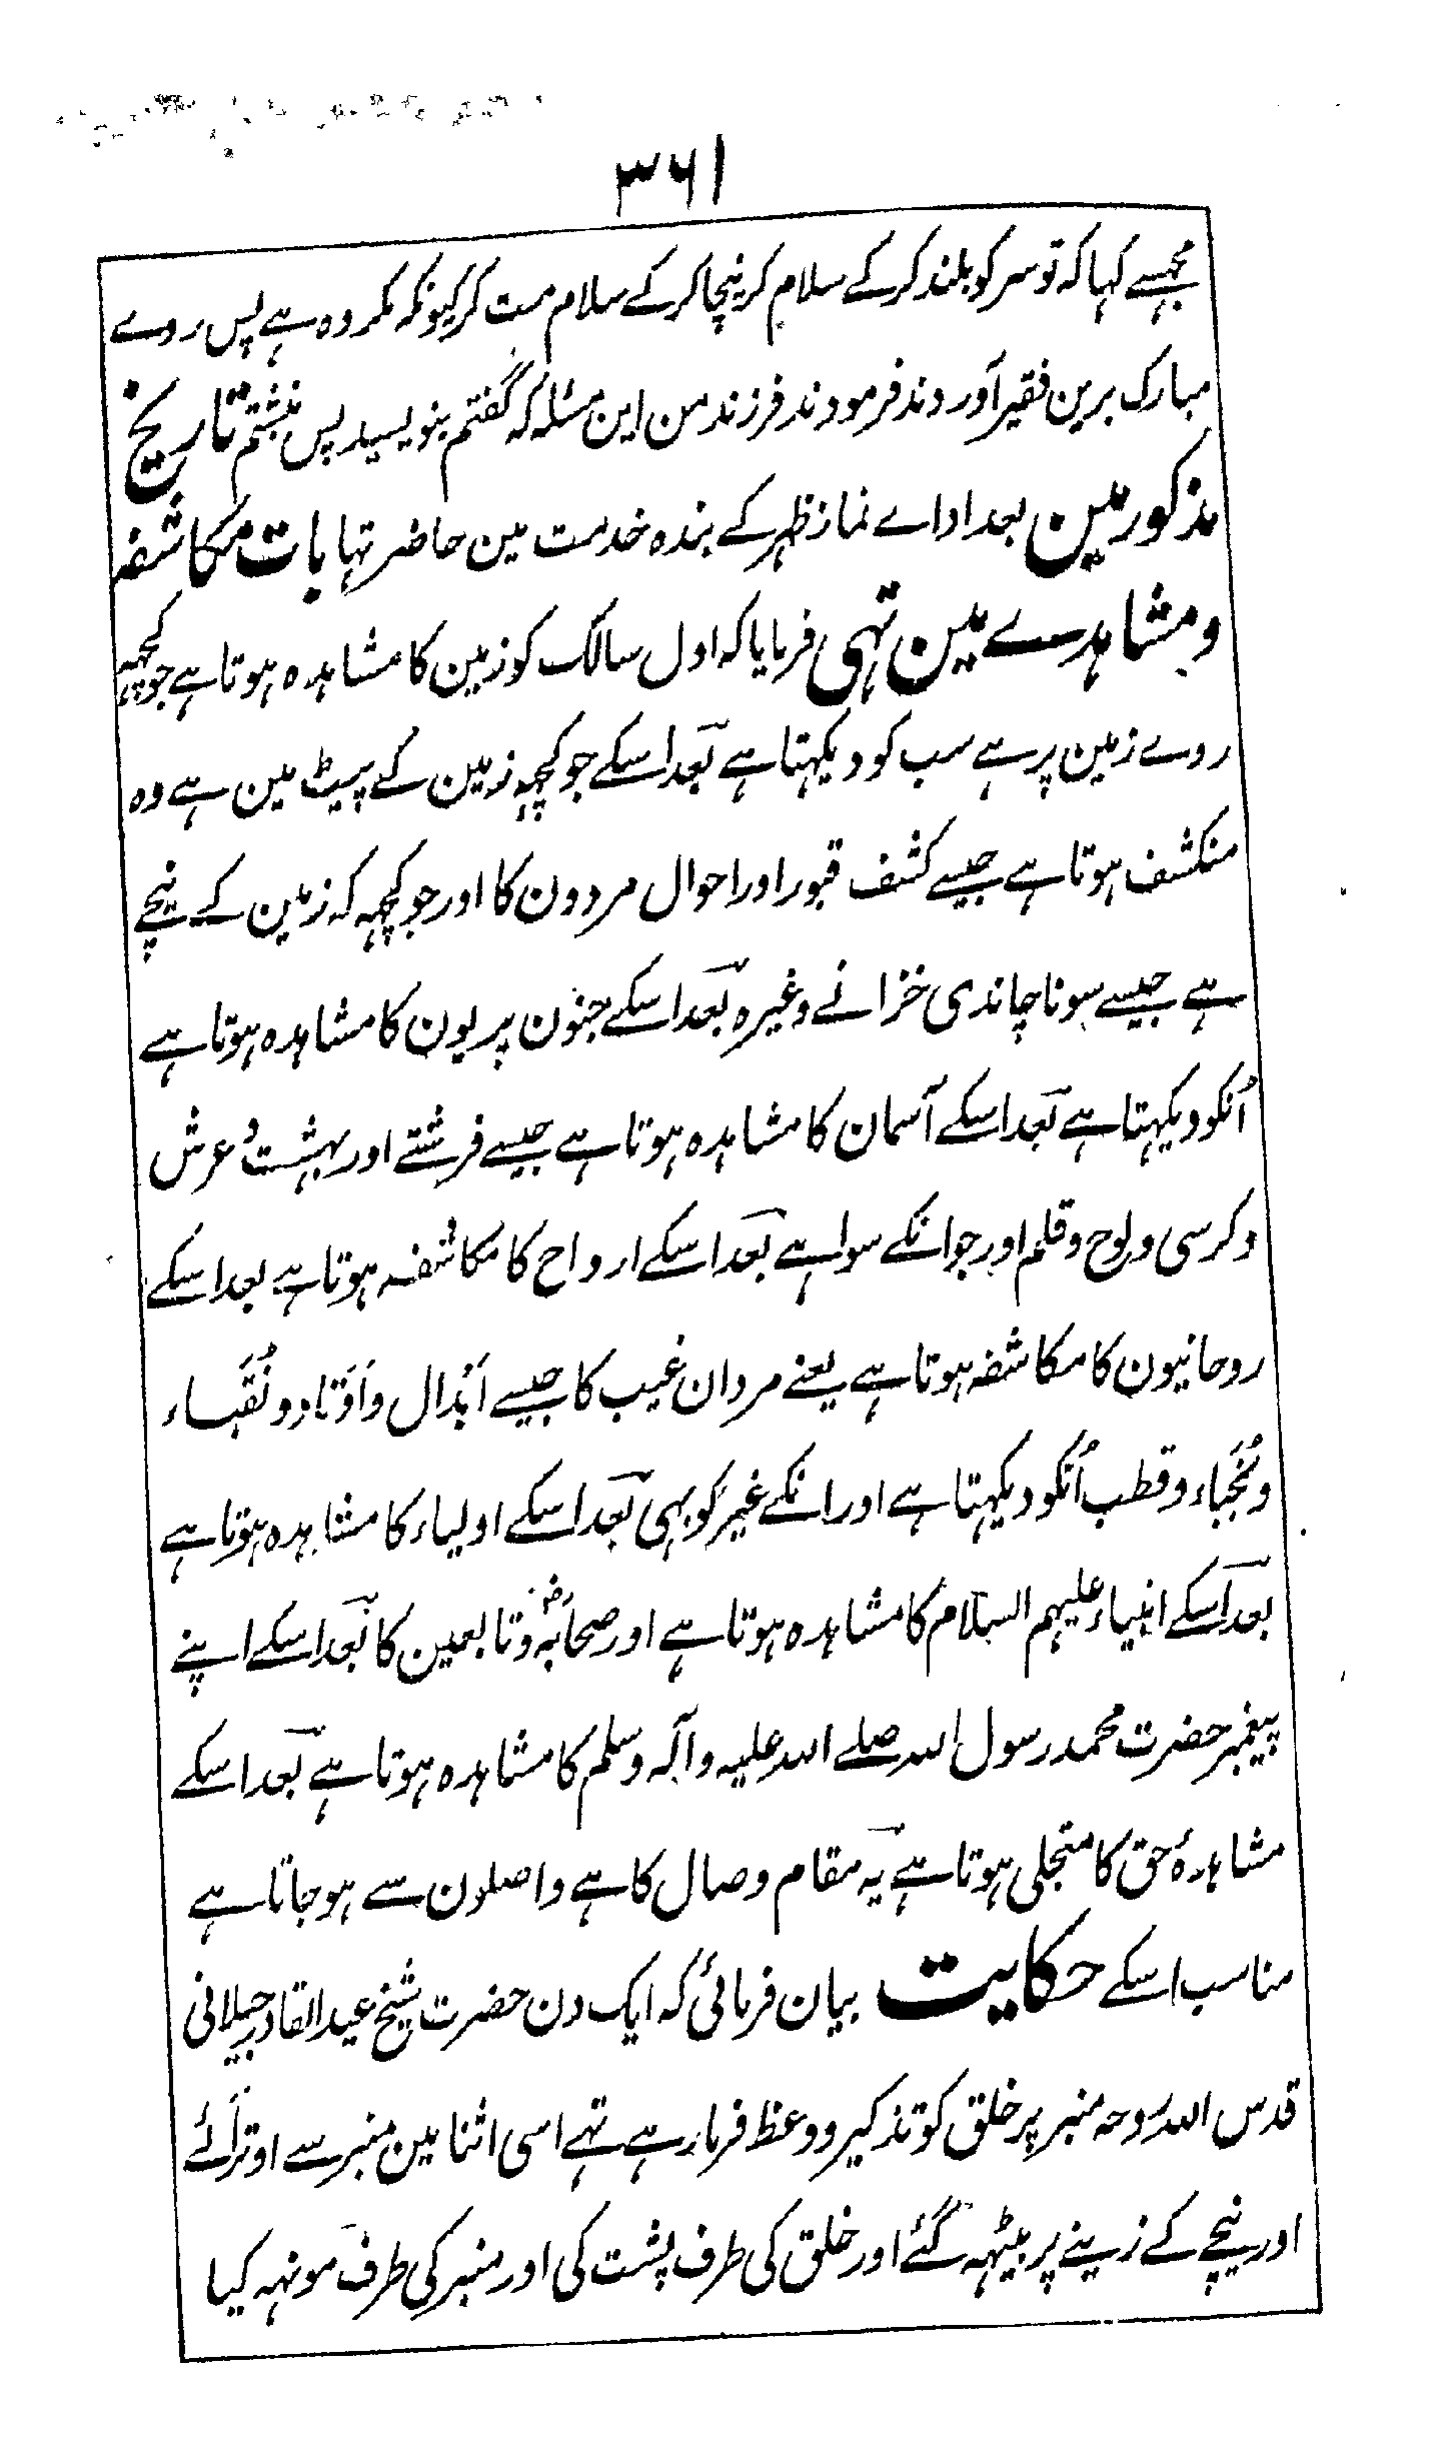 ۳۶۱
مجہسے کہا کہ تو سر کو بلند کر کے سلام کر نیچا کر کے سلام مت کر کیونکہ مکروہ ہے پس روے
مبارک برین فقیر آوردند فرمودند فرزند من این مسئلہ کہ گفتم بنویسید پس نبشتم تاریخ
مذکور مین بعد اداے نماز ظہر کے بندہ خدمت مین حاضر تہا بات مکاشفہ
و مشاہدے مین تہی فرمایا کہ اول سالک کو زمین کا مشاہدہ ہوتا ہے جو کچہہ
روے زمین پر ہے سب کو دیکہتا ہے بعد اسکے جو کچہہ زمین کے پیٹ مین ہے وہ
منکشف ہوتا ہے جیسے کشف قبور اور احوال مردون کا اور جو کچہہ کہ زمین کے نیچے
ہے جیسے سونا چاندی خزانے وغیرہ بعد اسکے جنون پریون کا مشاہدہ ہوتا ہے
اُنکو دیکہتا ہے بعد اسکے آسمان کا مشاہدہ ہوتا ہے جیسے فرشتے اور بہشت و عرش
و کرسی و لوح و قلم اور جو انکے سوا ہے بعد اسکے ارواح کا مکاشفہ ہوتا ہے بعد اسکے
روحانیون کا مکاشفہ ہوتا ہے یعنے مردان غیب کا جیسے اَبْدال و اَوْتاد و نُقَباء
و نُجَباء و قطب اُنکو دیکہتا ہے اور انکے غیر کو بہی بعد اسکے اولیاء کا مشاہدہ ہوتا ہے
بعد اسکے انبیاء علیہم السلام کا مشاہدہ ہوتا ہے اور صحابہؓ و تابعین کا بعد اسکے اپنے
پیغمبر حضرت محمد رسول اللہ صلے اللہ علیہ وآلہ وسلم کا مشاہدہ ہوتا ہے بعد اسکے
مشاہدۂ حق کا متجلی ہوتا ہے یہ مقام وصال کا ہے واصلون سے ہو جاتا ہے
مناسب اسکے حکایت بیان فرمائی کہ ایک دن حضرت شیخ عبد القادر جیلانی
قدس اللہ روحہ منبر پر خلق کو تذکیر و وعظ فرما رہے تہے اسی اثنا مین منبر سے اوتر آئے
اور نیچے کے زینے پر بیٹہہ گئے اور خلق کی طرف پشت کی اور منبر کی طرف مونہہ کیا